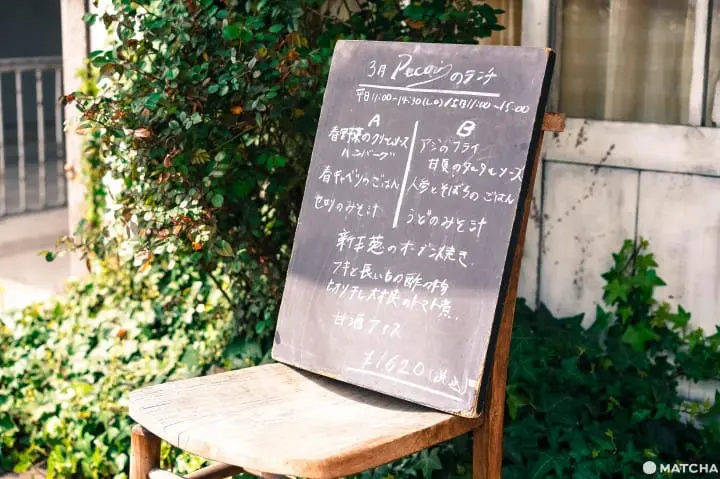 3月 Pecoriのランチ
平日11:00~14:30(L.O) 土日11:00~15:00
A
春野菜のクリームソース
ハンバーグ
春キャベツのごはん
セロリのみそ汁
B
アジのフライ
甘夏のタルタルソース
人参とそぼろのごはん
うどのみそ汁
新玉葱のオーブン焼き
フキと長いもの酢の物
切り干し大根のトマト煮
甘酒アイス
¥1620(税込)
MATCHA